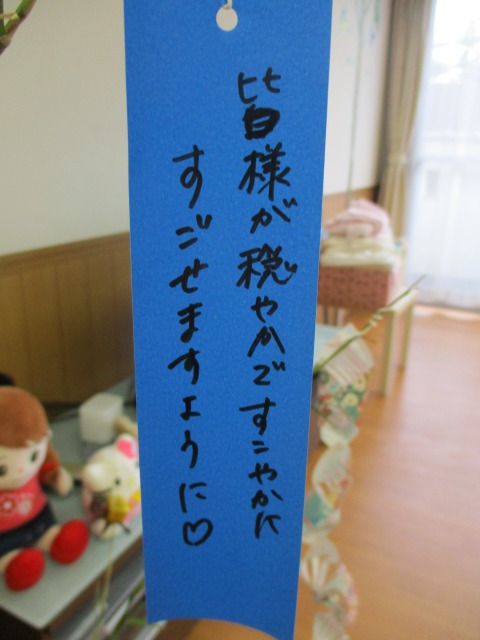 皆様が穏やかですこやかに
すごせますように♡